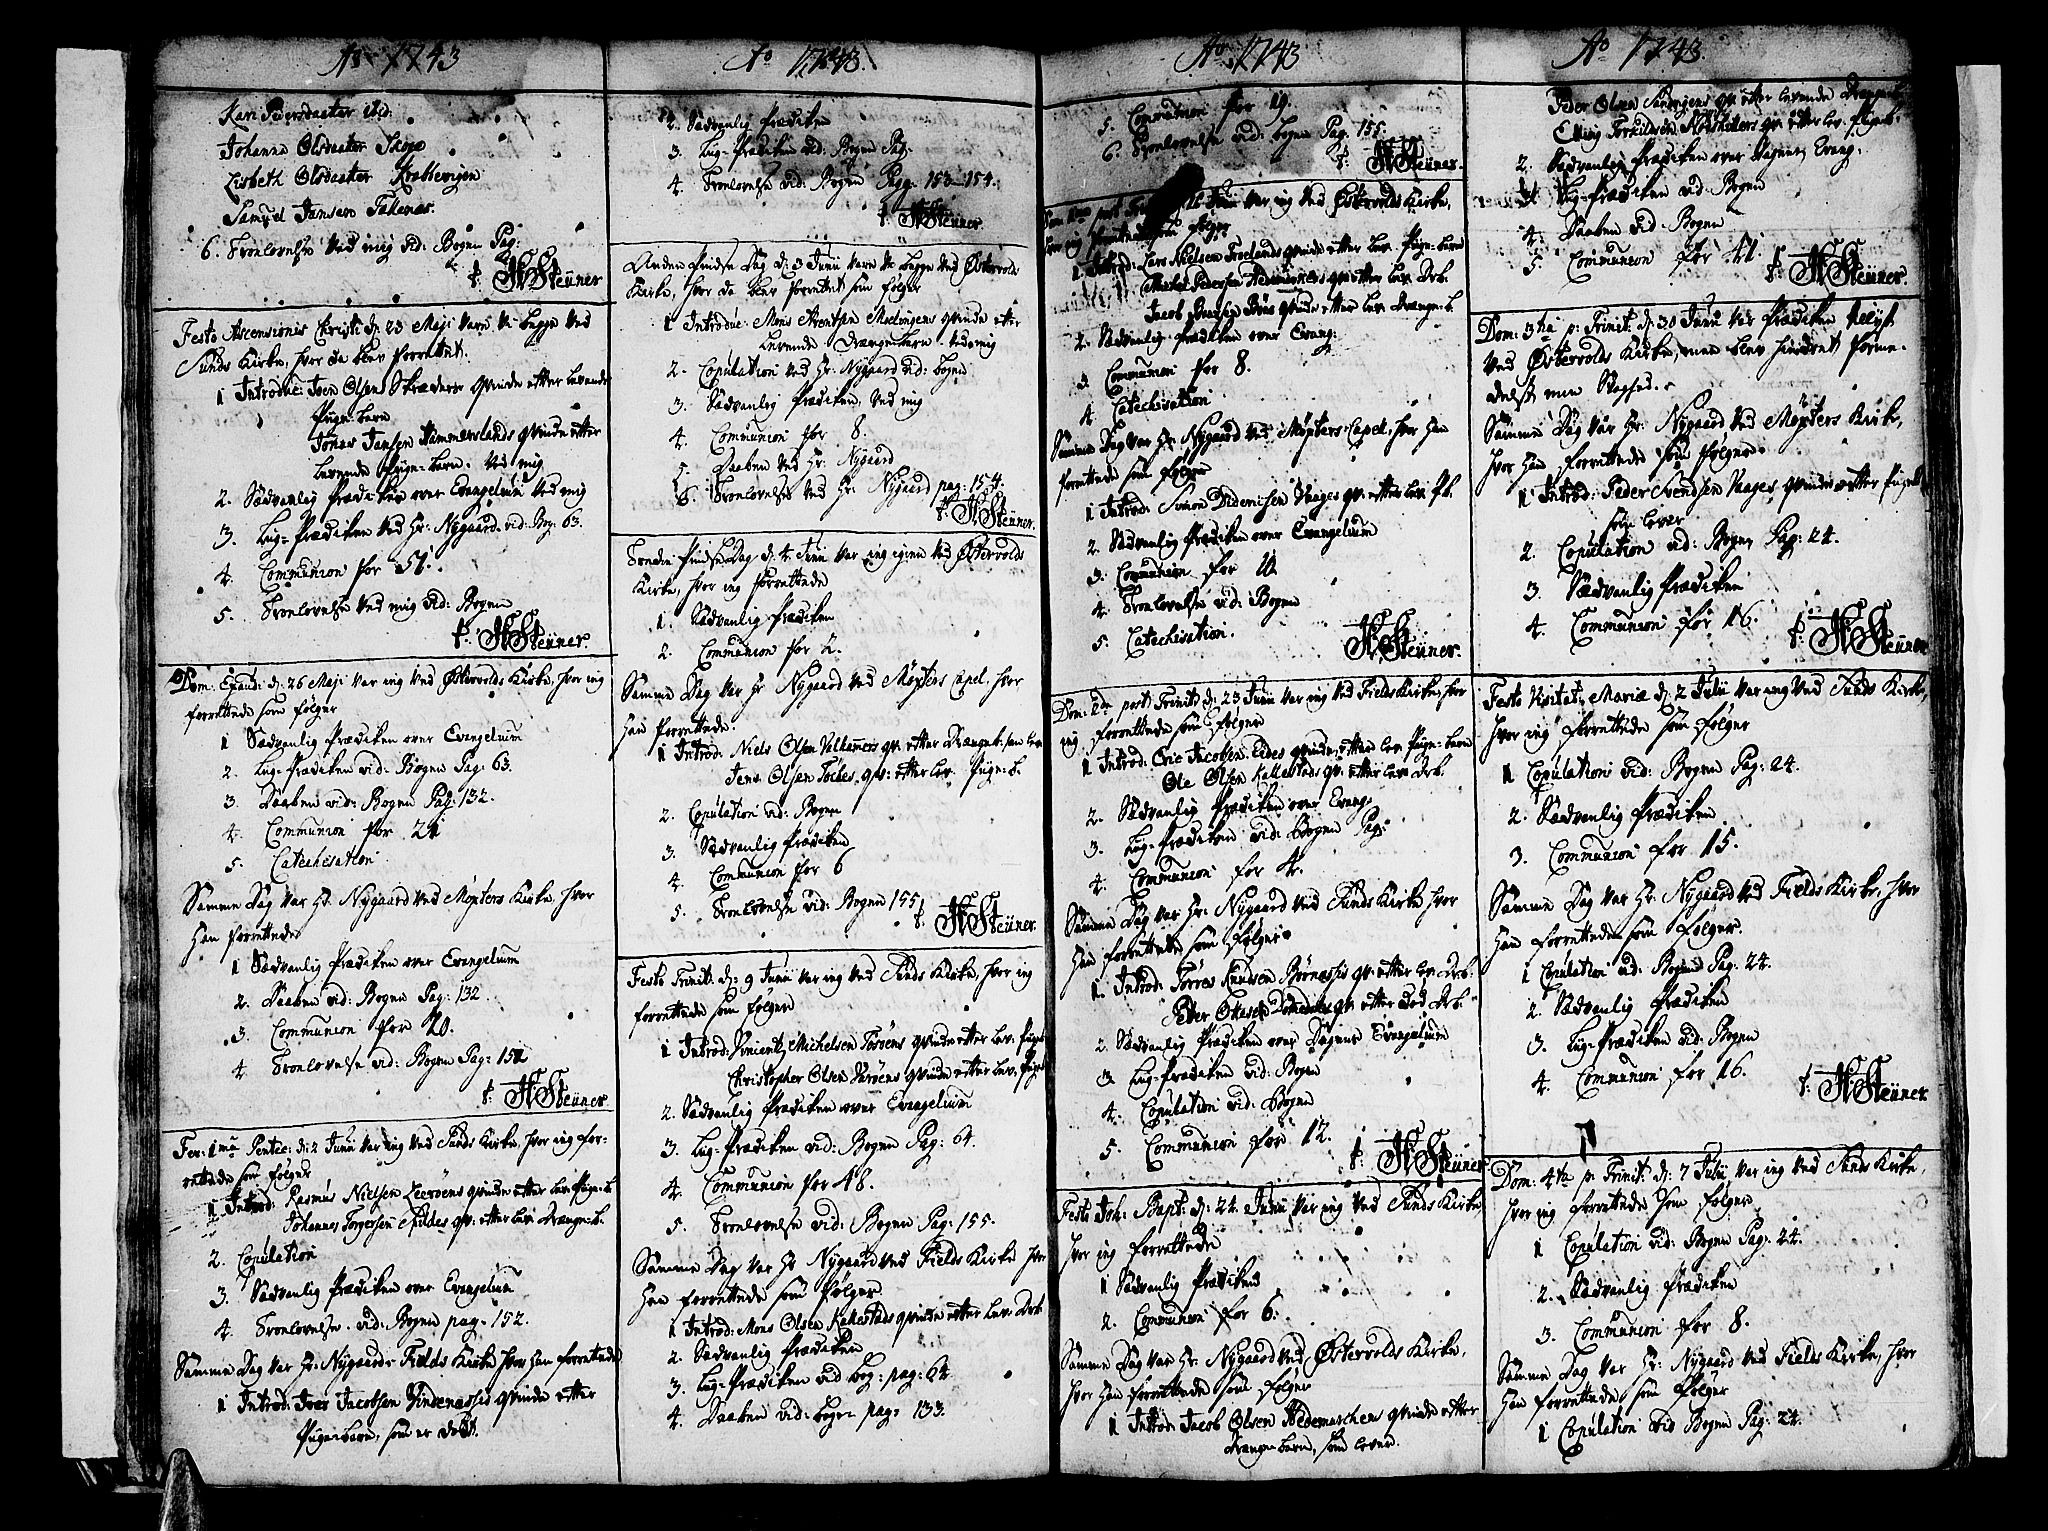 Ao 1743
Kari Pedersdaatter ibid:
Johanna Olsdaatter Skoge
Lisbeth Olsdaatter Krabbevigen
Samuel Jansen Tellenæs.
6. Troelovelse ved mig vid: Bogen Pag:
t. H Steüner
Festo Ascensionis Christi d: 23 Maji vare vi begge ved
Sunds Kirke, hvor da blev forrettet.
1 Introduc: Iver Olsen Skræders qvinde efter levende
Piige-barn
Jonas Jansen Hammerslands qvinde efter
levende Piige-barn. ved mig
2. Sædvanlig Prædiken over Evangelium ved mig
3. Liig-Prædiken ved Hr: Nygaard. vid: Bog: 63.
4. Communion for 51.
5. Troelovelse ved mig vid: Bogen
t. H Steüner.
Dom: Exaud: d: 26 Maji var ieg ved Østervolds Kirke, hvor ieg
forrettede som følger
1 Sædvanlig Prædiken over Evangelium
2. Liig-Prædiken vid: Bogen Pag: 63.
3. Daaben vid: Bogen Pag: 132.
4. Communion for 21
5. Catechisation
Samme Dag var Hr. Nygaard ved Møgsters Kirke, hvor
han forrettede
1 Sædvanlig Prædiken over Evangelium
2. Daaben vid: Bogen Pag: 132
3. Communion for 20.
4. Troelovelse vid: Bogen Pag: 152
t: H Steüner
Fer: 1ma Pentec: d: 2 Junii var ieg ved Sunds Kirke, hvor ieg for-
rettede som følger
1 Introd: Rasmus Nielsen Leerøens qvinde efter lev: Piige-b.
Johannes Torgersen Spildes qv: efter lev: Drænge-b.
2. Copulation
3. Sædvanlig Prædiken over Evangelium
4. Troelovelse. vid: Bogen pag: 152.
Samme Dag var Hr: Nygaard Fields Kirke hvor han forrettede
1 Introd: Iver Jacobsen qvinde efter
Piige-barn, som er dødt.
Ao 1743.
2. Sædvanlig Prædiken
3. Liig-Prædiken vid: Bogen Pag:
4. Troelovelse vid: Bogen Pagg: 153-154.
t. H Steüner.
Anden Pindse Dag d: 3 Junii vare vi begge ved Østervolds
Kirke, hvor da blev forrettet som følger
1 Introduc: Mons Arentsen Møelingens qvinde efter
levende Drængebarn ved mig
2. Copulation ved Hr: Nygaard vid: Bogen
3. Sædvanlig Prædiken, ved mig
4. Communion for 8.
5. Daaben ved Hr: Nygaard
6. Troelovelse ved Hr: Nygaard pag: 154.
t. H Steüner.
Tredie Pindse Dag d: 4 Junii var ieg igien ved Østervolds
Kirke, hvor ieg forrettede
1. Sædvanlig Prædiken
2. Communion for 2.
Samme Dag var Hr Nygaard ved Møgsters Capel, hvor
han forrettede.
1 Introd: Niels Olsen qv. efter Drængeb: som lever
Jens Olsen qv: efter lev. Piige-b.
2. Copulation vid: Bogen
3. Sædvanlig Prædiken
4. Communion for 6
5. Troelovelse vid: Bogen 155
t. H Steüner.
Festo Trinit: d: 9 Junii var ieg ved Sunds Kirke, hvor ieg
forrettede som følger
1 Introd: Vincentz Michelsen Toføens qvinde efter lev: Piigeb
Christopher Olsen qvinde efter lev: Piigeb
2. Sædvanlig Prædiken over Evangelium
3. Liig-Prædiken vid: Bogen Pag: 64.
4. Communion for 18.
5. Troelovelse vid: Bogen Pag: 155.
Samme Dag var Hr Nygaard ved Fields Kirke hvor
han forrettede som følger
1 Introd: Mons Olsen Kallestads qvinde efter lev: Drb
2. Sædvanlig Prædiken
3. Liig-Prædiken vid bog: pag: 64.
4. Daaben vid: bogen pag: 133.
Ao 1743
5. Communion for 19.
6. Troelovelse vid: bogen Pag: 155.
t. H Steüner.
Dom: 1ma post Junii var ieg ved Østervolds Kirke,
hvor ieg forrettede som følger
1 Introd: Lars Nielsen qvinde efter lev. Piige-barn
Michel Pedersen qv. efter lev. Drb.
Jacob qvinde efter lev. Drænge-b.
2. Sædvanlig Prædiken over Evang:
3. Communion for 8.
4. Catechisation
Samme Dag var Hr: Nygaard ved Møgsters Capel, hvor han
forrettede som følger
1 Introd: Simon Diderichsen Vaages qv. efter lev. Pb.
2. Sædvanlig Prædiken over Evangelium
3. Communion for
4. Troelovelse vid: Bogen
5. Catechisation.
H Steüner.
Dom: 2da post Trinit: d: 23 Junii var ieg ved Fields Kirke, hvor
ieg forrettede som følger
1 Introd: Eric Jacobsen Eides qvinde efter lev Piige-barn
Ole Olsen Kallestads qv. efter lev Drb.
2. Sædvanlig Prædiken over Evang:
3. Liig-Prædiken vid: Bogen Pag:
4. Communion for 4.
Samme Dag var Hr: Nygaard ved Sunds Kirke hvor
han forrettede som følger
1. Introd: Torres Knudsen qv. efter lev: Drb.
Peder qv efter død Drb.
2. Sædvanlig Prædiken over Dagens Evangelium
3 Liig-Prædiken vid: Bogen
4. Copulation vid: Bogen
5. Communion for 12.
t. H Steüner
Festo Joh: Bapt: d: 24. Junii var ieg ved Sunds Kirke
hvor ieg forrettede
1 Sædvanlig Prædiken
2. Communion for 6.
Samme Dag var Hr: Nygaard ved Østervolds Kirke,
hvor han forrettede som følger
1 Introd: Jacob Olsen Hedemarchens qvinde efter
Drænge barn, som lever.
Ao 1743.
Peder Olsen qv efter levende Drængeb.
Elling Torkildsen qv: efter lev. Piige-b.
2. Sædvanlig Prædiken over Dagens Evang:
3 Liig-Prædiken vid: Bogen
4. Daaben vid: Bogen
5. Communion for 41.
t. H Steüner.
Dom: 3tia p: Trinit: d: 30 Junii
ved Østervolds Kirke, men blev hindret forme-
delst min Svaghed.
Samme Dag var Hr: Nygaard ved Møgsters Kirke,
hvor han forrettede som følger
1 Introd: Peder Svendsen Vaages qvinde efter Piigeb.
som lever
2. Copulation vid: Bogen Pag: 24.
3. Sædvanlig Prædiken
4. Communion for 16.
t. H Steüner
Festo Visitat: Mariæ d: 2 Julii var ieg ved Sunds Kirke,
hvor ieg forrettede som følger
1 Copulation vid: Bogen Pag: 24.
2. Sædvanlig Prædiken
3. Communion for 15.
Samme Dag var Hr: Nygaard ved Fields Kirke, hvor
han forrettede som følger.
1 Copulation vid: Bogen Pag: 24.
2. Sædvanlig Prædiken
3. Liig-Prædiken vid: Bogen
4. Communion for 16.
t: H Steüner
Dom: 4ta p: Trinit: d: 7 Julii var ieg ved Sunds Kirke,
hvor ieg forrettede som følger
1 Copulation vid: Bogen Pag: 24.
2. Sædvanlig Prædiken
3. Communion for 8.
Samme Dag var Hr: Nygaard ved Fields Kirke, hvor
han forrettede som følger
1 Copulation vid Bogen Pag: 24.